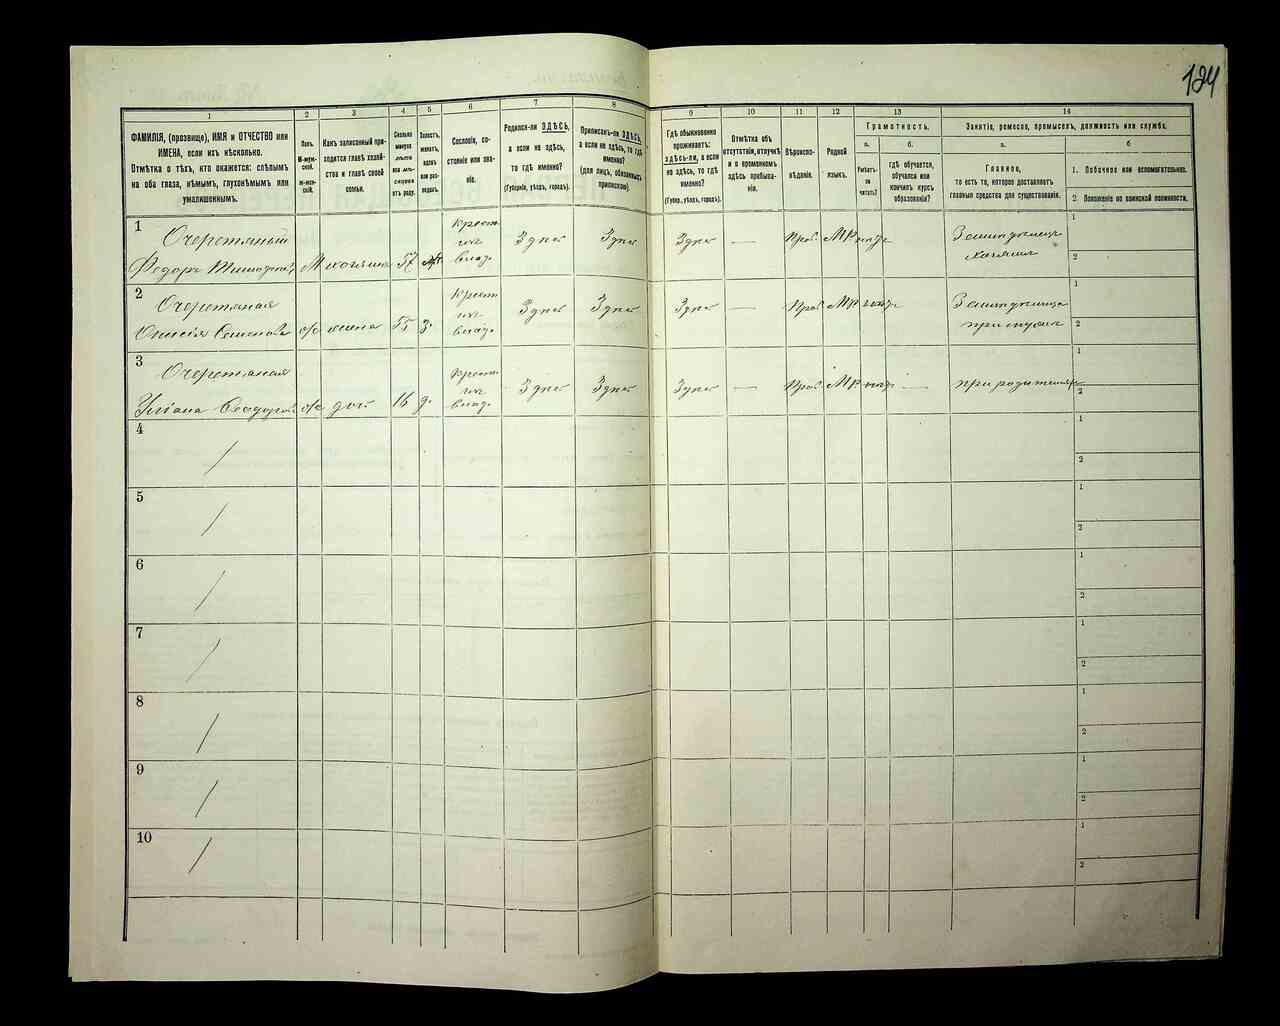 124
1
2
3
4
5
6
7
8
9
10
11
12
13
14
ФАМИЛІЯ, (прозвище), ИМЯ и ОТЧЕСТВО или
ИМЕНА, если ихъ нѣсколько.
Отмѣтка о тѣхъ, кто окажется: слѣпымъ
на оба глаза, нѣмымъ, глухонѣмымъ или
умалишеннымъ.
Полъ.
М-муж-
ской.
ж-жен-
ской.
Какъ записанный при-
ходится главѣ хозяй-
ства и главѣ своей
семьи.
Сколько
минуло
лѣтъ
или мѣ-
сяцевъ
отъ роду.
Холостъ,
женатъ,
вдовъ
или раз-
веденъ.
Сословіе, со-
стояніе или зва-
ніе.
Родился-ли ЗДѢСЬ,
а если не здѣсь,
то гдѣ именно?
(Губернія, уѣздъ, городъ).
Приписанъ-ли ЗДѢСЬ,
а если не здѣсь, то гдѣ
именно?
(для лицъ, обязанныхъ
припискою).
Гдѣ обыкновенно
проживаетъ:
здѣсь-ли, а если
не здѣсь, то гдѣ
именно?
(Губер., уѣздъ, городъ).
Отмѣтка объ
отсутствіи, отлучкѣ
и о временномъ
здѣсь пребыва-
ніи.
Вѣроиспо-
вѣданіе.
Родной
языкъ.
Грамотность.
а.
Умѣетъ-
ли
читать?
б.
гдѣ обучается,
обучался или
кончилъ курсъ
образованія?
Занятіе, ремесло, промыселъ, должность или служба.
а.
Главное,
то есть то, которое доставляетъ
главныя средства для существованія.
б
1. Побочное или вспомогательное.
2. Положеніе по воинской повинности.
1
Очеретяный
Федоръ
М
хозяинъ
57
Крест
Здѣсь
Здѣсь
Здѣсь
—
Прав.
МР
нѣтъ
1
2
2
Очеретяная
ж
жена
55
З.
Крест
Здѣсь
Здѣсь
Здѣсь
—
Прав.
МР
нѣтъ
при мужѣ
1
2
3
Очеретяная
Уліана
ж
доч
16
д.
Крест
Здѣсь
Здѣсь
Здѣсь
—
Прав.
МР
нѣтъ
—
при родителяхъ
1
2
4
1
2
5
1
2
6
1
2
7
1
2
8
1
2
9
1
2
10
1
2